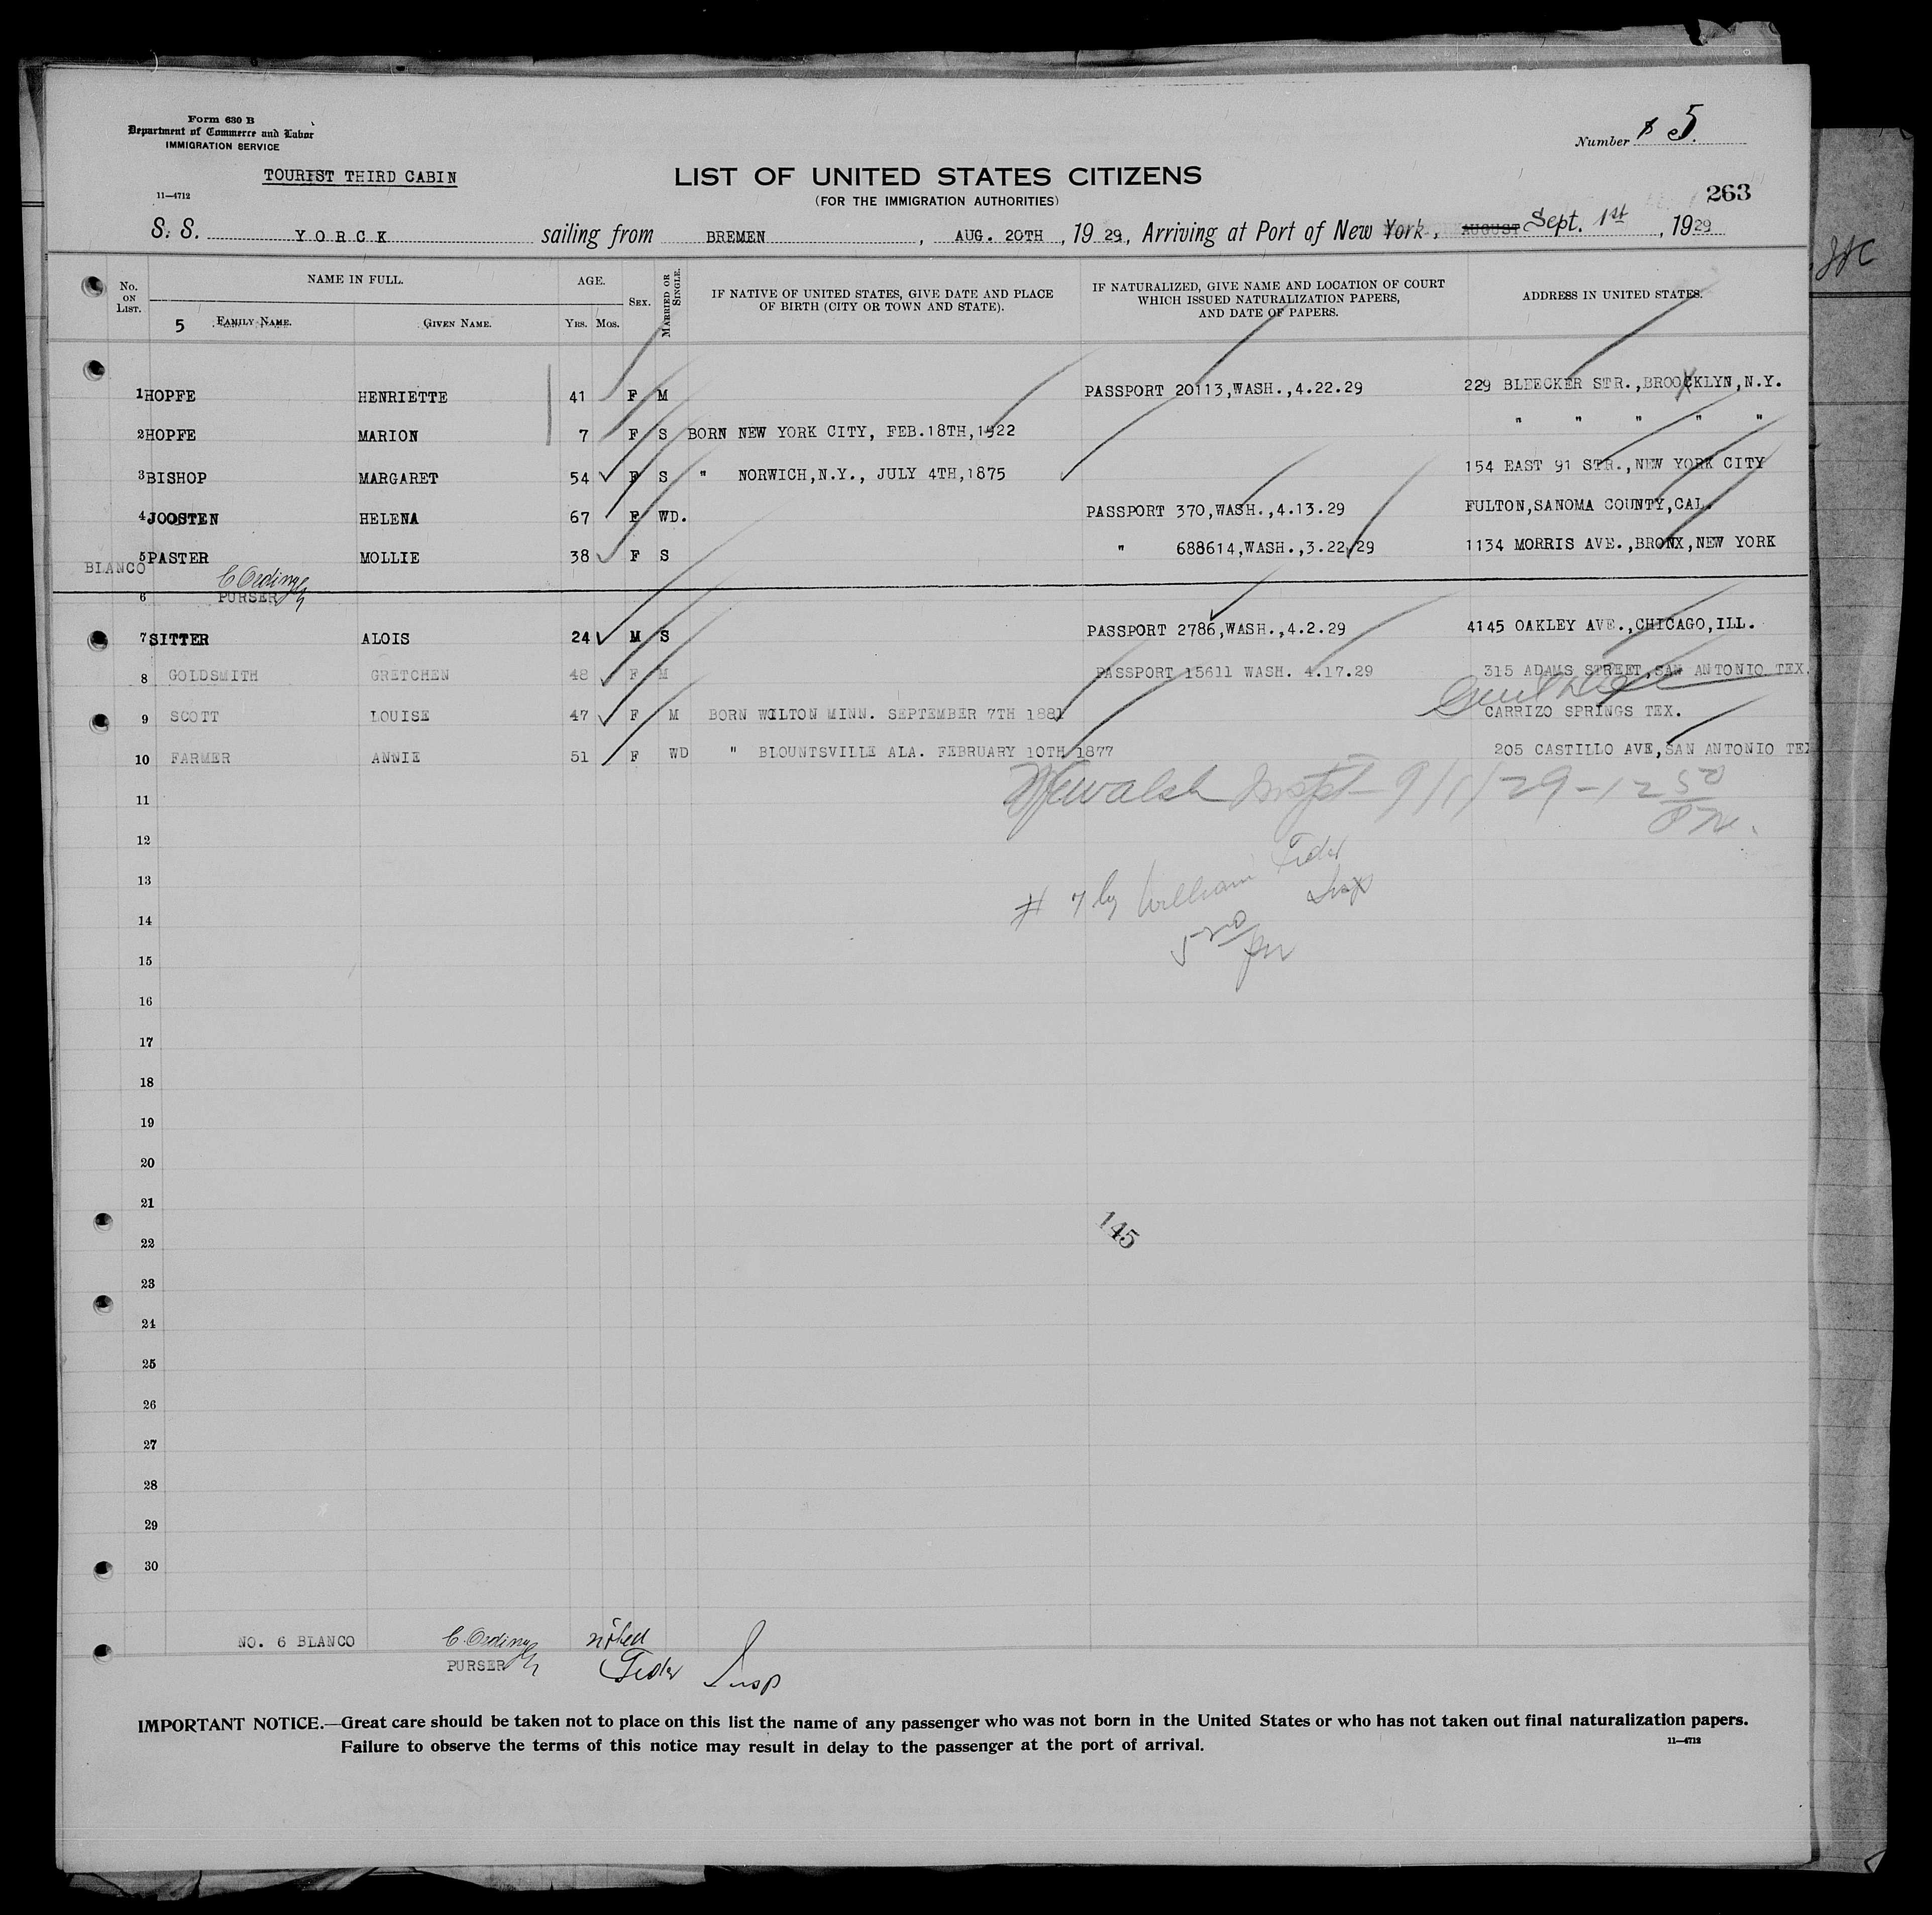 Form 630 B
Department of Commerce and Labor
IMMIGRATION SERVICE
Number 5.
TOURIST THIRD CABIN
LIST OF UNITED STATES CITIZENS
11—4712
(FOR THE IMMIGRATION AUTHORITIES)
263
S. S. YORCK sailing from BREMEN, AUG. 20TH, 1929, Arriving at Port of New York, AUGUST Sept. 1st, 1929
No. ON LIST. NAME IN FULL. AGE. SEX. MARRIED OR SINGLE. IF NATIVE OF UNITED STATES, GIVE DATE AND PLACE OF BIRTH (CITY OR TOWN AND STATE). IF NATURALIZED, GIVE NAME AND LOCATION OF COURT WHICH ISSUED NATURALIZATION PAPERS, AND DATE OF PAPERS. ADDRESS IN UNITED STATES.
5 FAMILY NAME. GIVEN NAME. YRS. MOS.
1 HOPFE HENRIETTE 41 F M PASSPORT 20113,WASH.,4.22.29 229 BLEECKER STR.,BROOCKLYN,N.Y.
2 HOPFE MARION 7 F S BORN NEW YORK CITY, FEB.18TH,1922 " " " " "
3 BISHOP MARGARET 54 F S " NORWICH,N.Y., JULY 4TH,1875 154 EAST 91 STR.,NEW YORK CITY
4 JOOSTEN HELENA 67 F WD. PASSPORT 370,WASH.,4.13.29 FULTON,SANOMA COUNTY,CAL.
5 PASTER MOLLIE 38 F S " 688614,WASH.,3.22.29 1134 MORRIS AVE.,BRONX,NEW YORK
BLANCO
6 PURSER
7 SITTER ALOIS 24 M S PASSPORT 2786,WASH.,4.2.29 4145 OAKLEY AVE.,CHICAGO,ILL.
8 GOLDSMITH GRETCHEN 48 F M PASSPORT 15611 WASH. 4.17.29 315 ADAMS STREET,SAN ANTONIO TEX.
9 SCOTT LOUISE 47 F M BORN WILTON MINN. SEPTEMBER 7TH 1881 CARRIZO SPRINGS TEX.
10 FARMER ANNIE 51 F WD " BLOUNTSVILLE ALA. FEBRUARY 10TH 1877 205 CASTILLO AVE,SAN ANTONIO TEX
11 walsh Inspt 9/1/29-12 50
PM.
12
13
# 7 by William Feder
Insp
14
5 20 PM
15
16
17
18
19
20
21
145
22
23
24
25
26
27
28
29
30
NO. 6 BLANCO
PURSER Feder Insp
IMPORTANT NOTICE.—Great care should be taken not to place on this list the name of any passenger who was not born in the United States or who has not taken out final naturalization papers.
Failure to observe the terms of this notice may result in delay to the passenger at the port of arrival.
11—4712